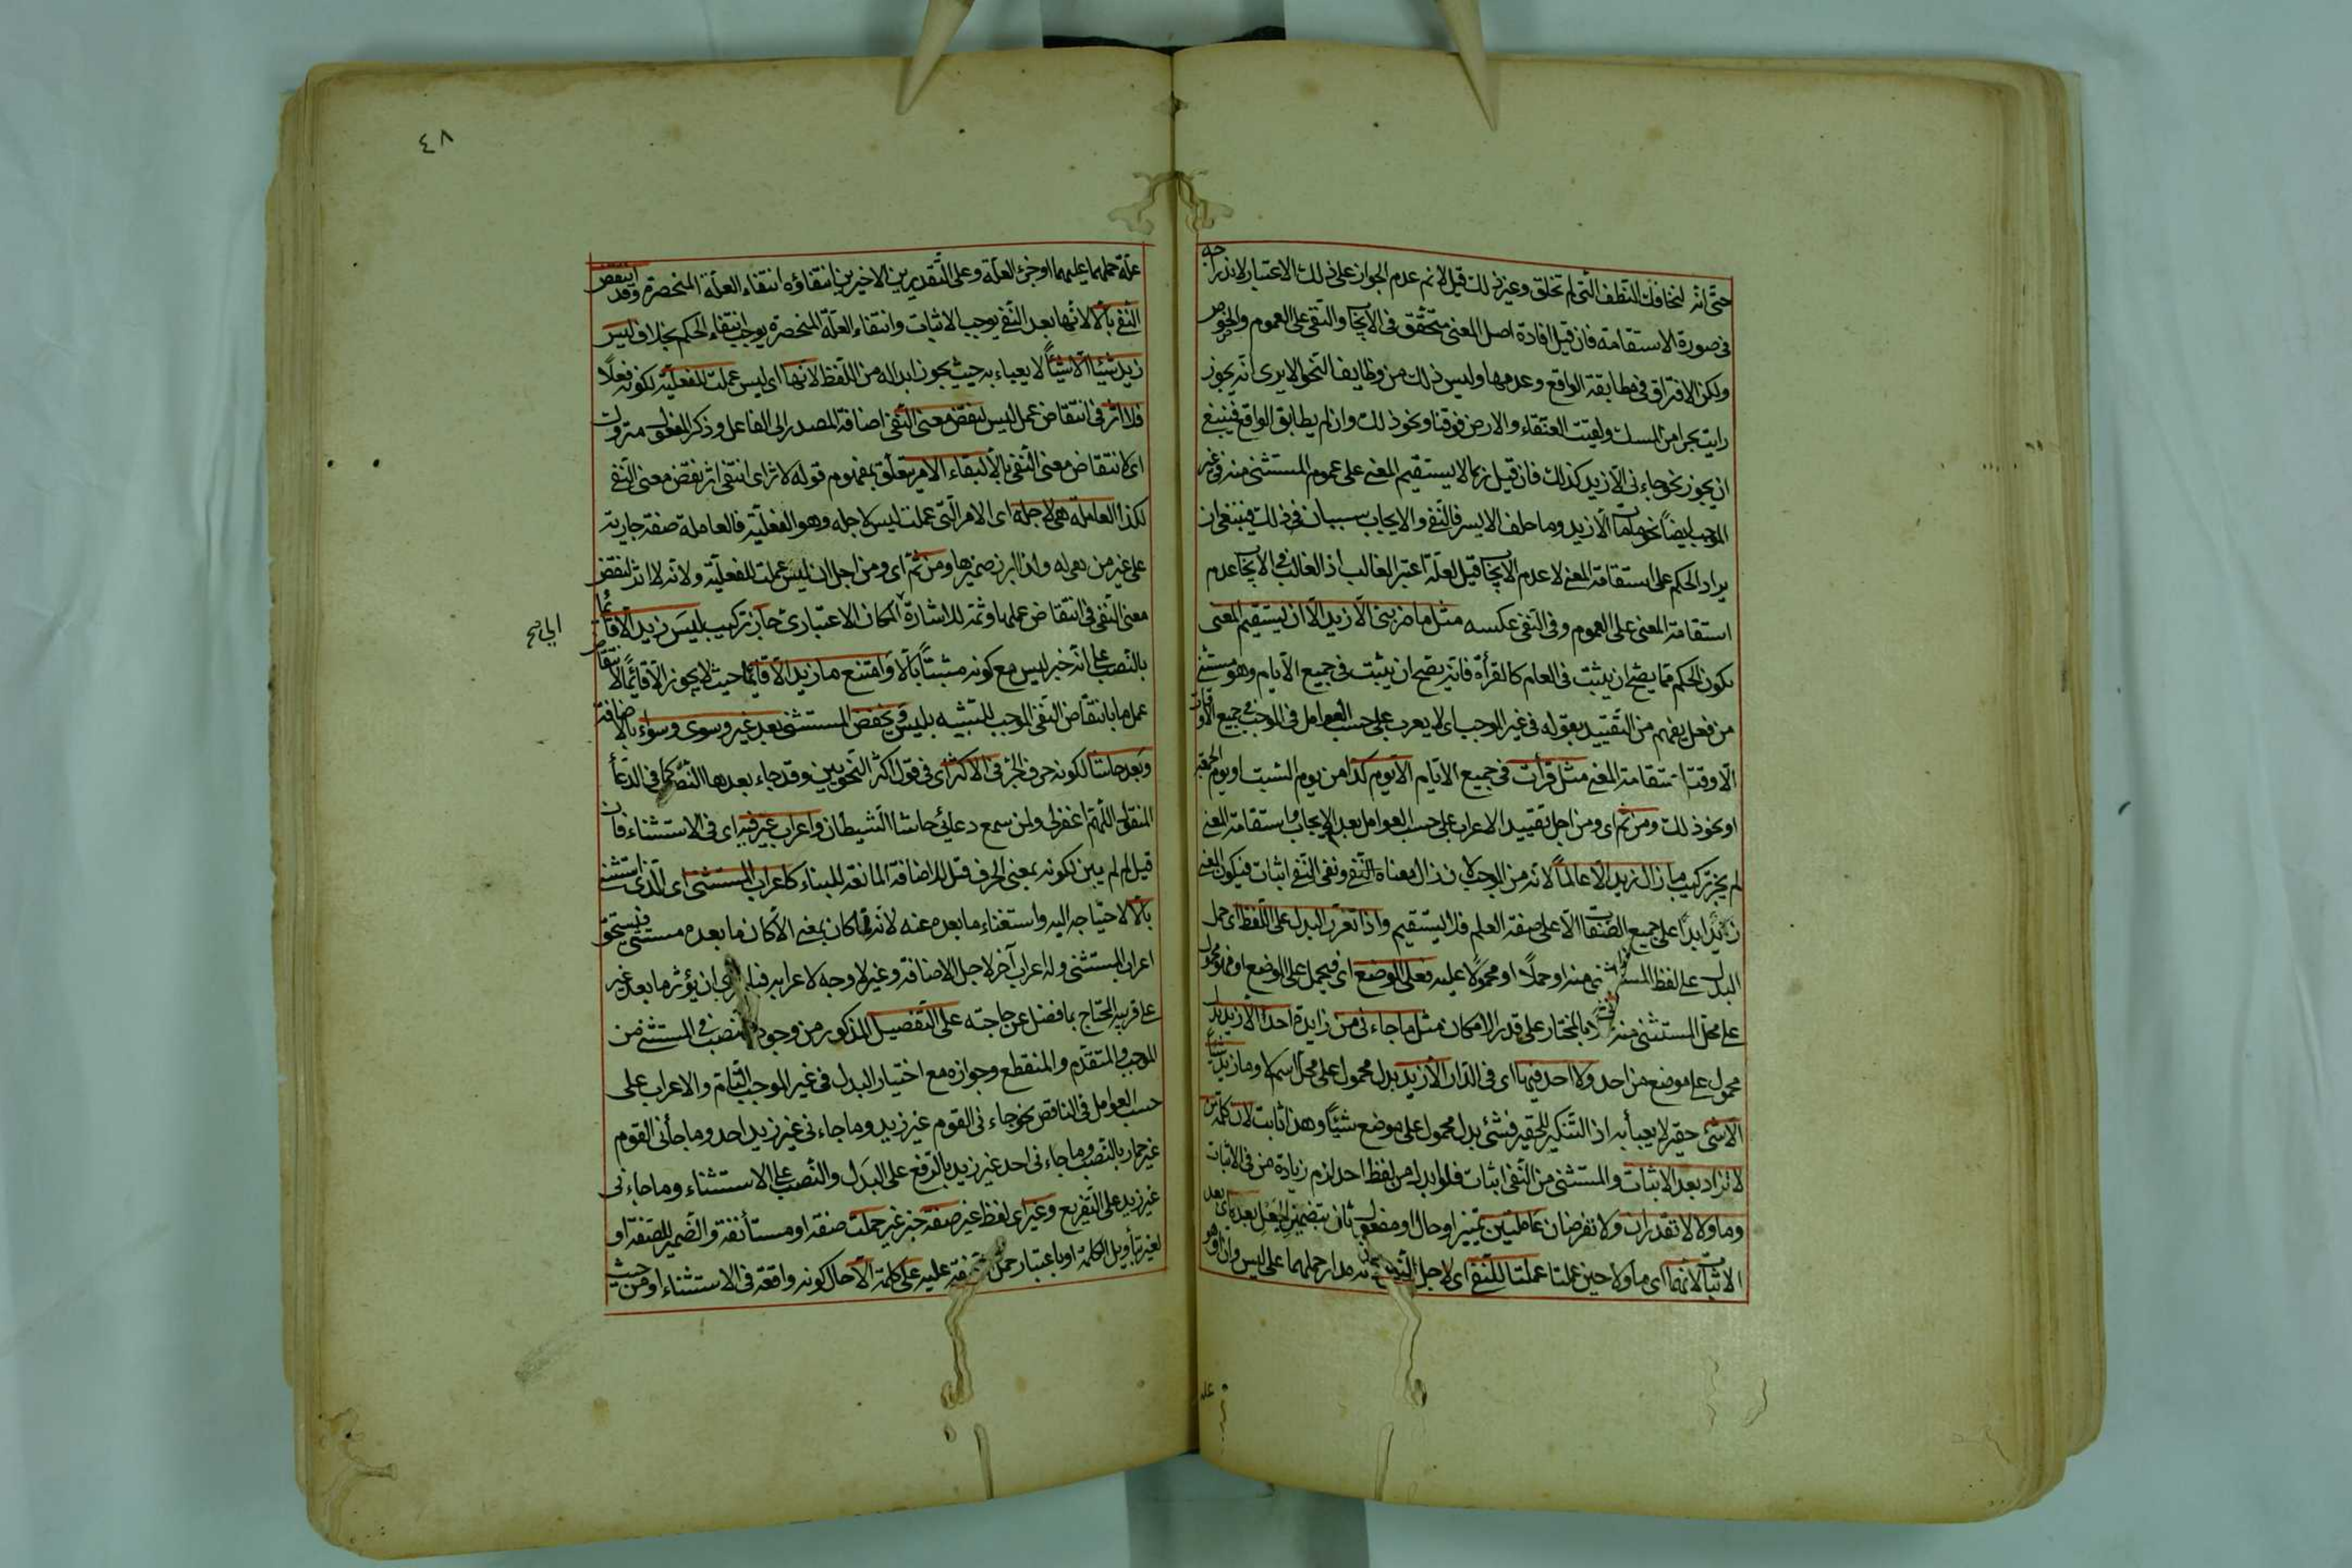 حتى انه لتخافك النطف التى لم تخلق وغير ذلك قيل لا نم عدم الجواز على ذلك الاعتبار لاندراجه
فى صورة الاستقامة فان قيل افادة اصل المعنى متحقق فى الايجاب والنفى على العموم والخصوص
ولكن الافتراق فى مطابقة الواقع وعدمها وليس ذلك من وظايف النحو الا يرى انه يجوز
رايت بحرا من المسك ولقيت العنقاء والارض فوقنا ونحو ذلك وان لم يطابق الواقع فينبغى
ان يجوز نحو جاءنى الا زيد كذلك فان قيل ربما لا يستقيم المعنى على عموم المستثنى منه فى غير
الموجب ايضا نحو ما مات الا زيد وما حلف الا يسر فالنفى والايجاب سببان فى ذلك فينبغى ان
يراد الحكم على استقامة المعنى لا عدم الايجاب قيل لعله اعتبر الغالب اذ الغالب فى الايجاب عدم
استقامة المعنى على العموم وفى النفى عكسه مثل ما ضربنى الا زيد الا ان يستقيم المعنى
بكون الحكم مما يصح ان يثبت فى العام كالقرأة فانه يصح ان يثبت فى جميع الايام وهو مستثنى
من فعل يفهم من التقييد بقوله فى غير الموجب اى لا يعرب على حسب العوامل فى الموجب فى جميع الاوقات
الا وقت استقامة المعنى مثل قرأت فى جميع الايام الا يوم كذا من يوم السبت او يوم الجمعة
او نحو ذلك ومن ثم اى ومن اجل تقييد الاعراب على حسب العوامل بعد الايجاب باستقامة المعنى
لم يجز تركيب ما زال زيد الا عالما لانه من الموجب لان زال معناه النفى ونفى النفى اثبات فيكون المعنى
زيد ابدا على جميع الصفات الا على صفة العلم فلا يستقيم واذا تعذر البدل على اللفظ اى حمل
البدل على لفظ المستثنى منه او حملا او محمولا عليه فعلى الموضع اى فيحمل على الموضع او فهو محمول
على محل المستثنى منه بالمختار على قدر الامكان مثل ما جاءنى من زايدة احد الا زيد بدل
محمول على موضع من احد ولا احد فيها اى فى الدار الا زيد بدل محمول على محل اسم لا وما زيد شيئا
الا شئ حقير لا يعبأ به اذ التنكير للتحقير فشئ بدل محمول على موضع شيئا وهذا ثابت لان كلمة من
لا تزاد بعد الاثبات والمستثنى من النفى اثبات فلو ابدل من لفظ احد لزم زيادة من فى الاثبات
وما ولا لا تقدران ولا تفرضان عاملتين تمييز او حال او مفعول ثان بتضمين الجعل بعده اى بعد
الاثبات لانهما اى ما ولا حين عملتا عملتا للنفى اى لاجل النفى مدار حملهما على ليس وان هو
٤٨
علة حملهما عليهما او جزء العلة وعلى التقديرين الاخيرين انتقاؤه انتقاء العلة المنحصرة وقد انتقض
النفى بالا لانها بعد النفى يوجب الاثبات وانتفاء العلة المنحصرة يوجب انتفاء الحكم بخلاف ليس
زيد شيئا الا شيئا لا يعباء به حيث يجوز ابداله من اللفظ لانها اى ليس عملت للفعلية لكونه فعلا
فلا اثر فى انتقاض عمل ليس لنقض معنى النفى اضافة المصدر الى الفاعل وذكر المفعول متروك
اى كانتقاض معنى النفى بالا لبقاء الامر يتعلق بمفهوم قوله لا اثر اى انتفى اثر نقض معنى النفى
لكذا العاملة هى لاجله اى الامر التى عملت ليس لاجله وهو الفعلية فالعاملة صفة جارية
على غير من هى له ولذا ابرز ضميرها ومن ثم اى ومن اجل ان ليس عملت للفعلية ولانه لا اثر لنقض
معنى النفى فى انتقاض عملها وثمة للاشارة الى المكان الاعتبارى جاز تركيب ليس زيد الا قائما
بالنصب على انه خبر ليس مع كونه مثبتا بالا وامتنع ما زيد الا قائما حيث لا يجوز الا قائما لانتقاض
عمل ما بانتقاض النفى الموجب للتشبيه بليس ويخفض المستثنى بعد غير وسوى وسواء بالاضافة
وبعد حاشا لكونه حرف الجر فى الاكثر اى فى قول اكثر النحويين وقد جاء بعدها النصب كما فى الدعأ
المنقول اللهم اغفر لى ولمن سمع دعائى حاشا الشيطان واعراب غير فيه اى فى الاستثناء فان
قيل لم لم يبن لكونه بمعنى الحرف قيل للاضافة المانعة للبناء كاعراب المستثنى اى الذى استثنى
بالا لاحتياجه اليه واستغناء ما بعده عنه لانه لما كان بمعنى الا كان ما بعده مستثنى فيستحق
اعراب المستثنى وله اعراب آخر لاجل الاضافة وغير لا وجه لاعرابه ان يؤثر ما بعد غير
على قريبه المحتاج بما فضل عن حاجته على التفصيل المذكور من وجوب النصب فى المستثنى من
الموجب والمتقدم والمنقطع وجوازه مع اختيار البدل فى غير الموجب التام والاعراب على
حسب العوامل فى الناقص نحو جاءنى القوم غير زيد وما جاءنى غير زيد احد وما جأنى القوم
غير حمار بالنصب وما جاءنى احد غير زيد بالرفع على البدل والنصب على الاستثناء وما جاءنى
غير زيد على التفريع وغير اى لفظ غير صفة خبر غير حملت صفة او مستأنفة والضمير للصفة او
لغير بتأويل الكلمة او باعتبار حمل صفة عليه على كلمة الا حال كونه واقعة فى الاستثناء او من حيث